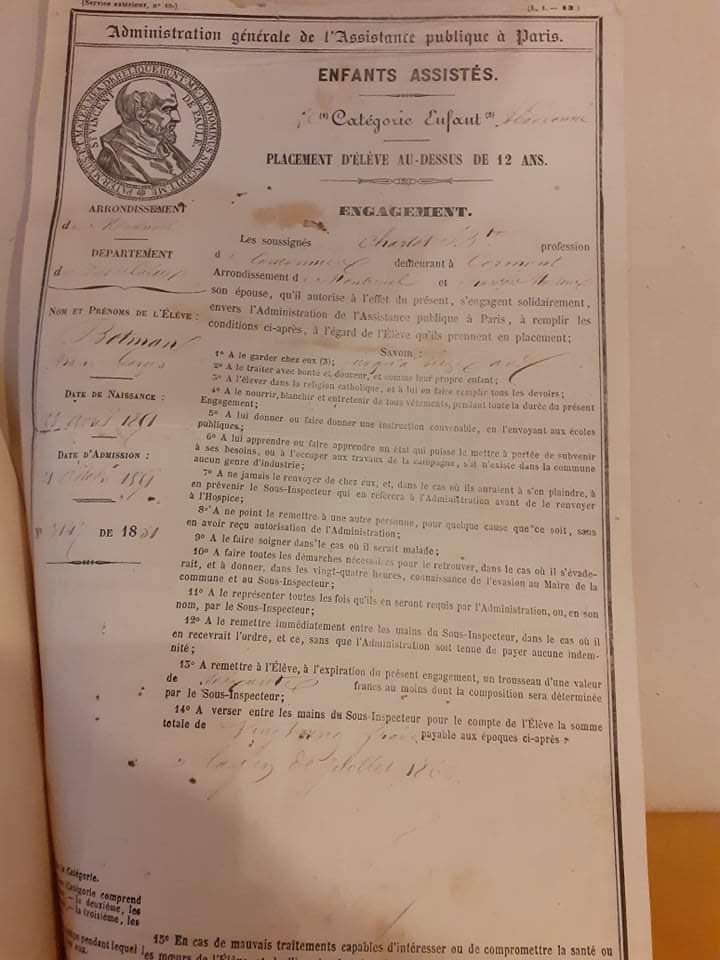 (Service extérieur, n° 19.) (L. 1.— 12)
Administration générale de l'Assistance publique à Paris.
ENFANTS ASSISTÉS.
(1) Catégorie Enfant (2)
PLACEMENT D'ÉLÈVE AU-DESSUS DE 12 ANS.
ST VINCENT DE PAULE
PATER MEUS ET MATER MEA DERELIQUERUNT ME ET DOMINUS SUSCEPIT ME
ARRONDISSEMENT
d
DÉPARTEMENT
d
NOM ET PRÉNOMS DE L'ÉLÈVE :
Botman
DATE DE NAISSANCE :
1851
DATE D'ADMISSION :
1851
N° DE 1851
ENGAGEMENT.
Les soussignés Charlot profession
d demeurant à Cormont
Arrondissement d Montreuil et
son épouse, qu'il autorise à l'effet du présent, s'engagent solidairement,
envers l'Administration de l'Assistance publique à Paris, à remplir les
conditions ci-après, à l'égard de l'Élève qu'ils prennent en placement;
SAVOIR :
1° A le garder chez eux (3);
2° A le traiter avec bonté et douceur, et comme leur propre enfant;
3° A l'élever dans la religion catholique, et à lui en faire remplir tous les devoirs;
4° A le nourrir, blanchir et entretenir de tous vêtements, pendant toute la durée du présent
Engagement;
5° A lui donner ou faire donner une instruction convenable, en l'envoyant aux écoles
publiques;
6° A lui apprendre ou faire apprendre un état qui puisse le mettre à portée de subvenir
à ses besoins, ou à l'occuper aux travaux de la campagne, s'il n'existe dans la commune
aucun genre d'industrie;
7° A ne jamais le renvoyer de chez eux, et, dans le cas où ils auraient à s'en plaindre, à
en prévenir le Sous-Inspecteur qui en référera à l'Administration avant de le renvoyer
à l'Hospice;
8° A ne point le remettre à une autre personne, pour quelque cause que ce soit, sans
en avoir reçu autorisation de l'Administration;
9° A le faire soigner dans le cas où il serait malade;
10° A faire toutes les démarches nécessaires pour le retrouver, dans le cas où il s'évade-
rait, et à donner, dans les vingt-quatre heures, connaissance de l'évasion au Maire de la
commune et au Sous-Inspecteur;
11° A le représenter toutes les fois qu'ils en seront requis par l'Administration, ou, en son
nom, par le Sous-Inspecteur;
12° A le remettre immédiatement entre les mains du Sous-Inspecteur, dans le cas où il
en recevrait l'ordre, et ce, sans que l'Administration soit tenue de payer aucune indem-
nité;
13° A remettre à l'Élève, à l'expiration du présent engagement, un trousseau d'une valeur
de francs au moins dont la composition sera déterminée
par le Sous-Inspecteur;
14° A verser entre les mains du Sous-Inspecteur pour le compte de l'Élève la somme
totale de payable aux époques ci-après :
la Catégorie.
Catégorie comprend
— la deuxième, les
— la troisième, les
pendant lequel les
eux.
15° En cas de mauvais traitements capables d'intéresser ou de compromettre la santé ou
les mœurs de l'Élève